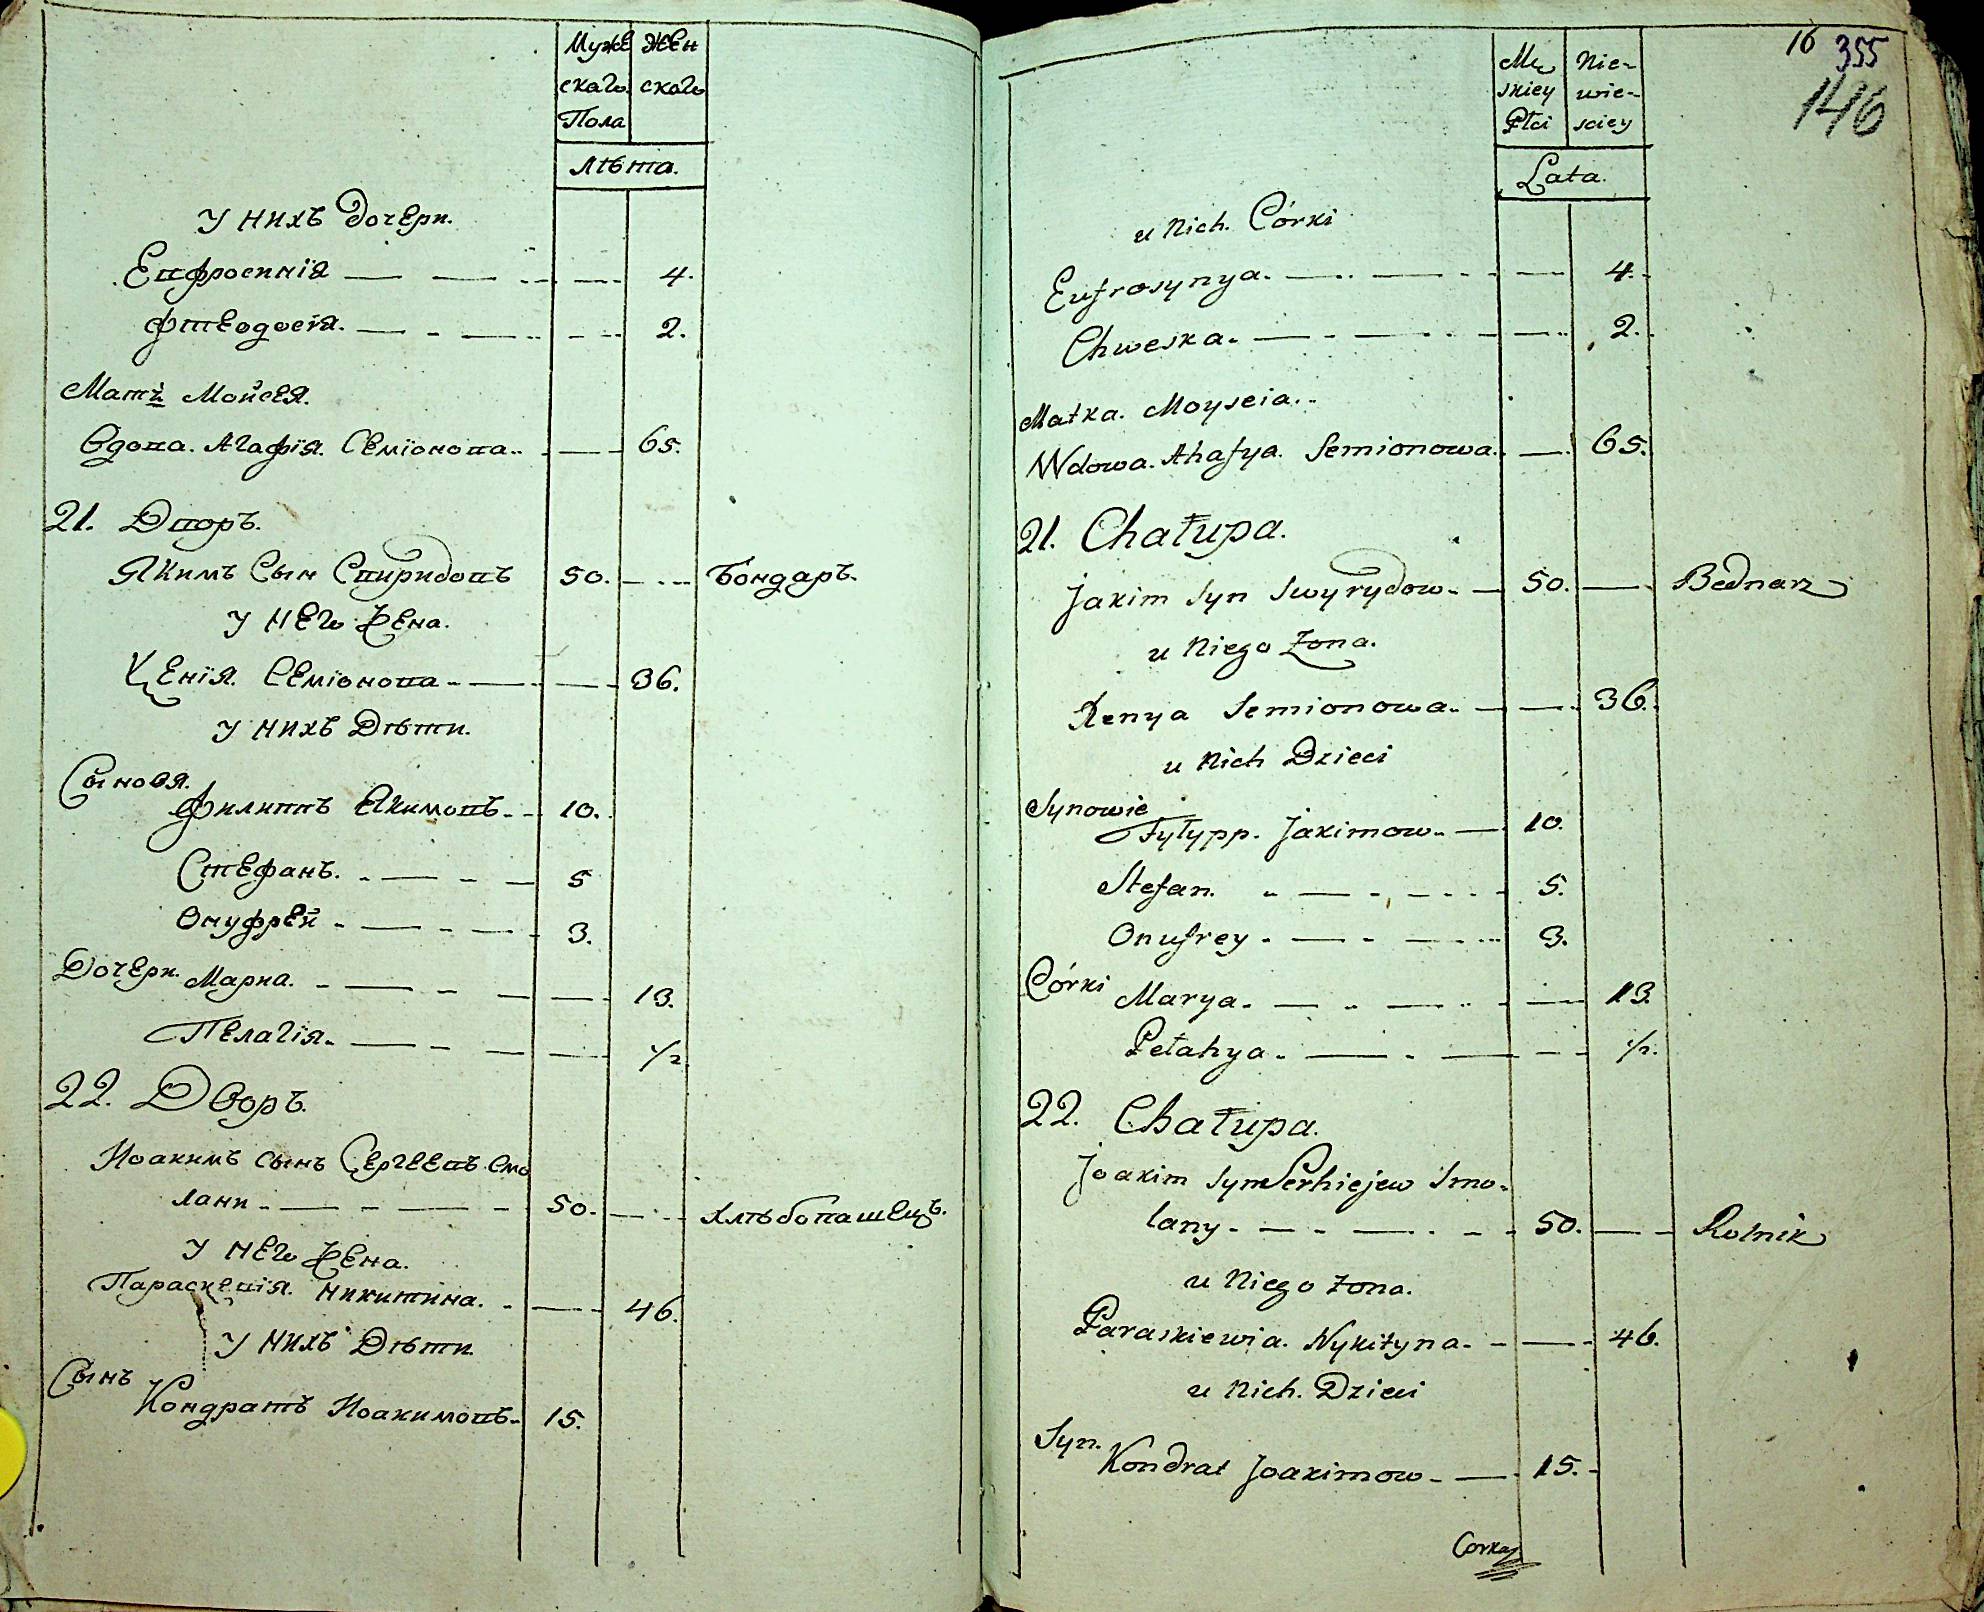 Муже Жен
скаго скаго
Пола
Лѣта.
У нихъ дочери.
Евфросинія 4.
Фтеодосія. 2.
Матъ Мойсея.
Вдова. Агафія. Семіонова. 65.
21. Дворъ.
Якимъ Сын Спиридовъ 50. Бондаръ.
У него Жена.
Ксенія. Семіонова 36.
У нихъ Дѣти.
Сыновя.
Филиппъ Якимовъ 10.
Стефанъ. 5
Онуфрей 3.
Дочери. Мариа. 13.
Пелагія. 1/2
22. Дворъ.
Иоакимъ сынъ Сергеевъ Смо
лани 50. Хлѣбопашецъ.
У него Жена.
Параскевія. Никитина. 46.
У нихъ Дѣти
Сынъ
Кондратъ Иоакимовъ 15.
16 355
146
Mę Nie-
skiey wie-
Płci sciey
Lata.
u Nich. Córki
Eufrosynya. 4.
Chweska. 2.
Matka. Moyseia.
Wdowa. Ahafya. Semionowa. 65.
21. Chałupa.
Jakim syn Swyrydow 50. Bednarz
u Niego Żona.
Xenya Semionowa. 36.
u Nich Dzieci
Synowie
Fyłypp. Jakimow. 10.
Stefan. 5.
Onufrey 3.
Córki Marya. 13.
Pełahya. 1/2.
22. Chałupa.
Joakim syn Serhiejew Smo-
lany 50. Rolnik
u Niego Żona.
Paraskiewia. Nykityna 46.
u Nich. Dzieci
Syn.
Kondrat Joakimow 15.
Corka